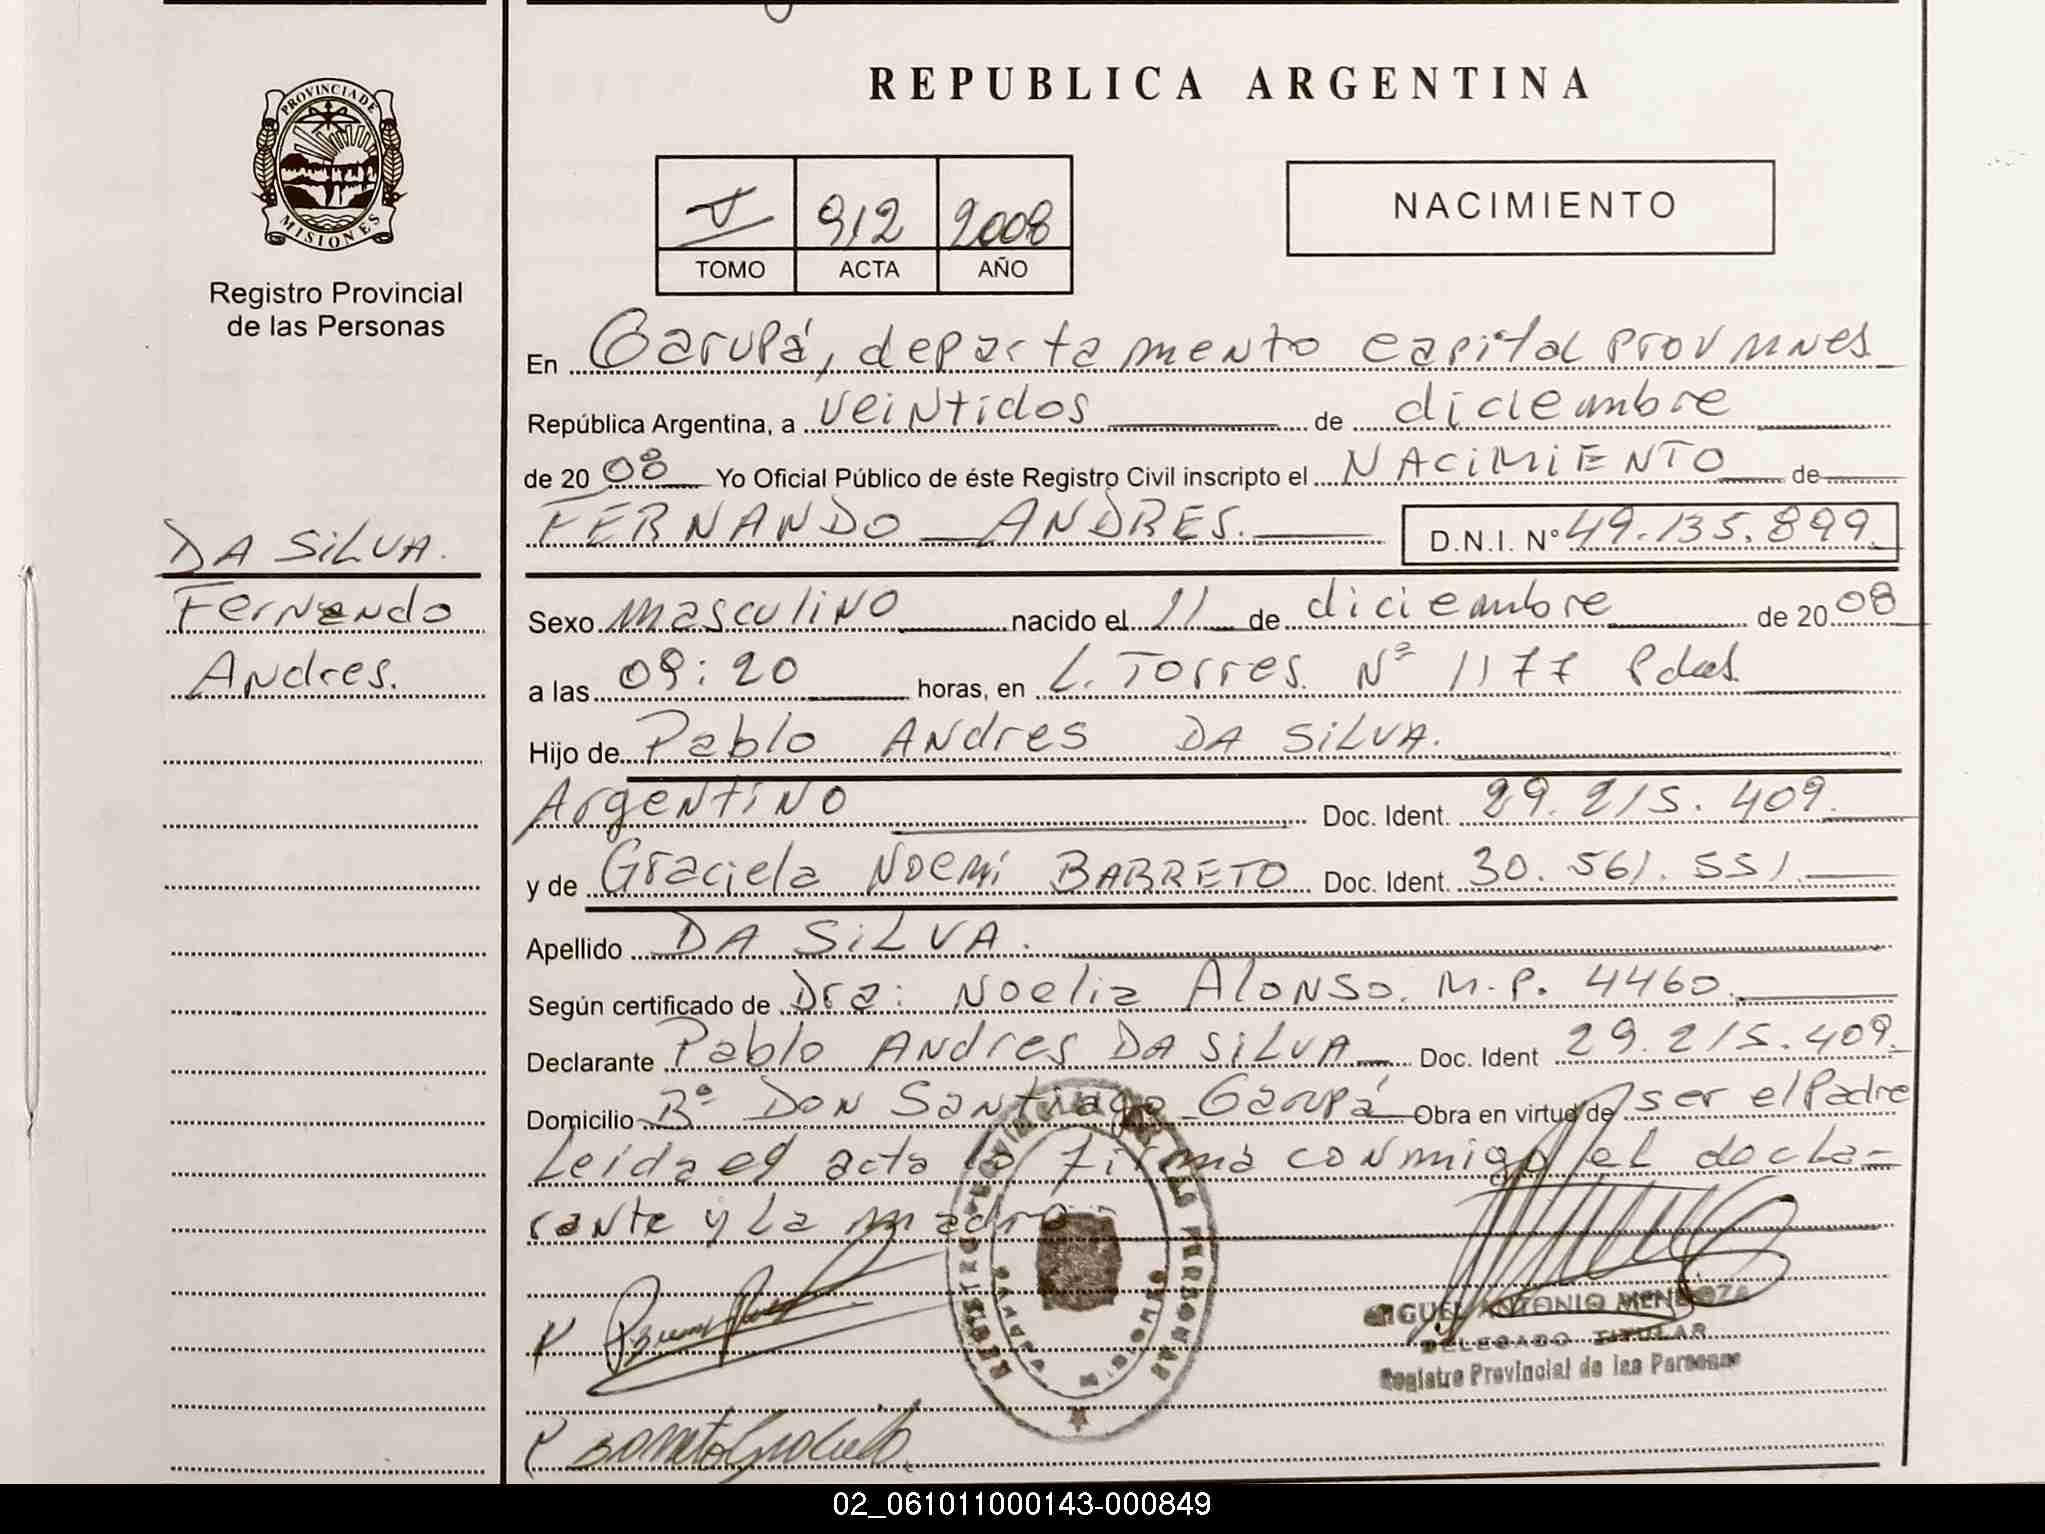 REPUBLICA ARGENTINA
PROVINCIA DE
MISIONES
Registro Provincial
de las Personas
912 2008
TOMO ACTA AÑO
NACIMIENTO
En Garupá, departamento capital
República Argentina, a veintidos de diciembre
de 2008 Yo Oficial Público de éste Registro Civil inscripto el NACIMIENTO de
FERNANDO ANDRES. D.N.I. Nº 49.135.899
DA SILVA.
Fernando
Andres.
Sexo masculino nacido el 11 de diciembre de 2008
a las 09:20 horas, en L. Torres. Nº 1177 Pdas.
Hijo de Pablo Andres DA SILVA.
Argentino Doc. Ident. 29.215.409.
y de Graciela Noemí BARRETO Doc. Ident. 30.561.551.
Apellido DA SILVA.
Según certificado de Dra: Noelia Alonso. M.P. 4460.
Declarante Pablo Andres DA SILVA Doc. Ident 29.215.409.
Domicilio Bº Don Santiago Garupá Obra en virtud de ser el Padre
Leida el acta la firma conmigo el decla-
rante y la madre
MIGUEL ANTONIO MENDOZA
DELEGADO TITULAR
Registro Provincial de las Personas
02_061011000143-000849